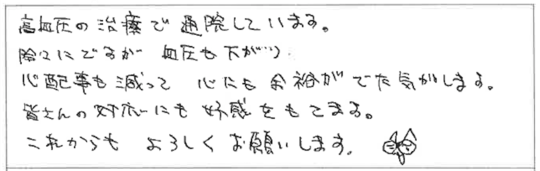 高血圧の治療で通院しています。
除々にですが 血圧も下がり
心配事も減って 心にも余裕がでた気がします。
皆さんの対応にも好感をもてます。
これからも よろしくお願いします。